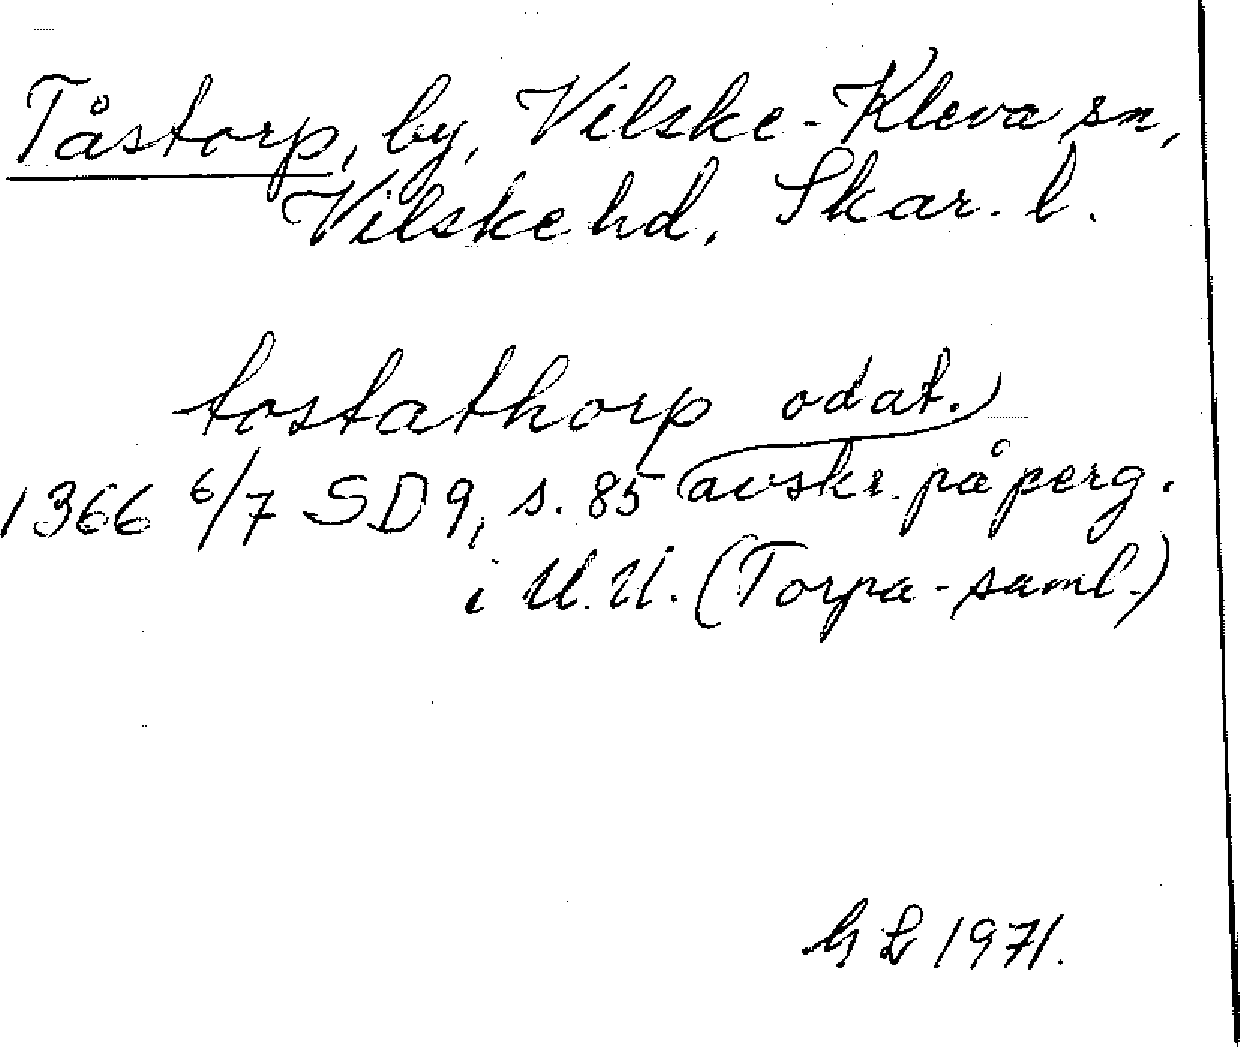 Tåstorp, by, Vilske-Kleva sn,
Vilske hd, Skar. l.
tostathorp odat.
1366 6/7 SD 9, s. 85 avskr. på perg.
i U.U. (Torpa-saml.)
G L 1971.